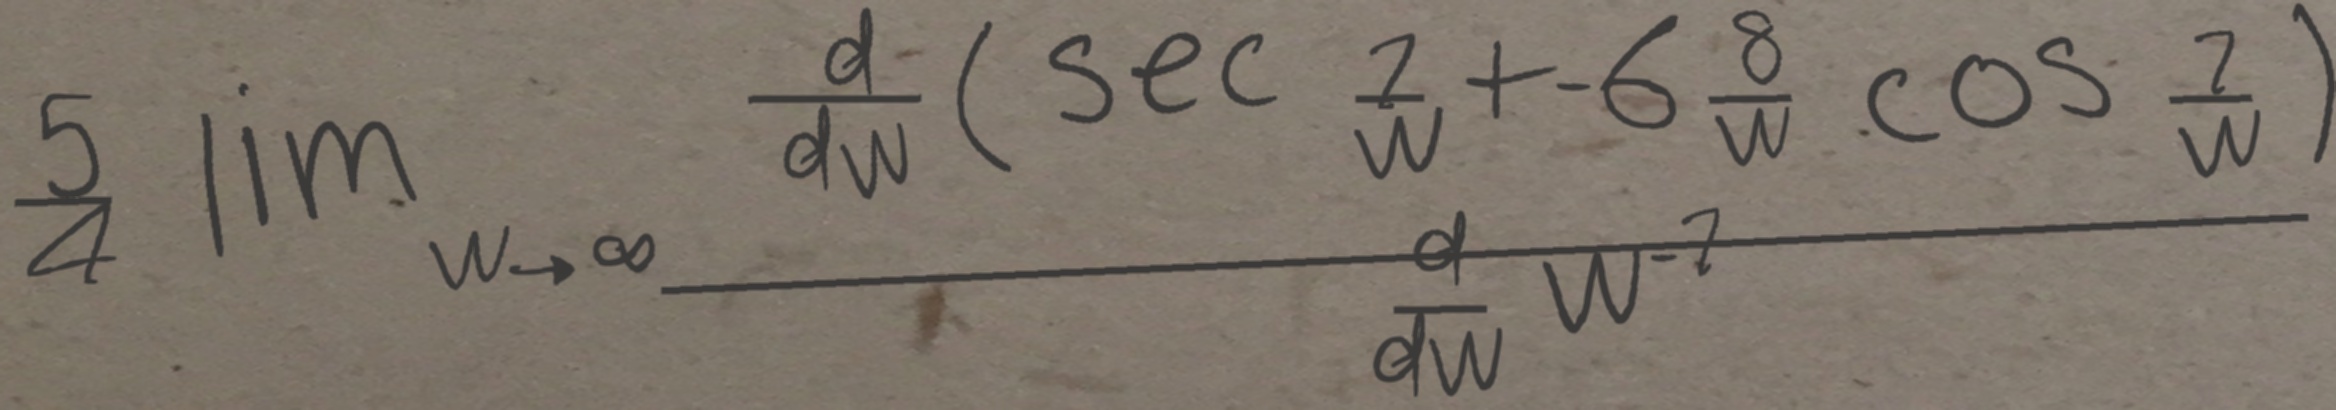 \frac{5}{4} \lim_{w \to \infty} \frac{\frac{d}{dw}\left(\sec \frac{1}{w} + -6 \frac{8}{w} \cos \frac{1}{w}\right)}{\frac{d}{dw} w^{-1}}